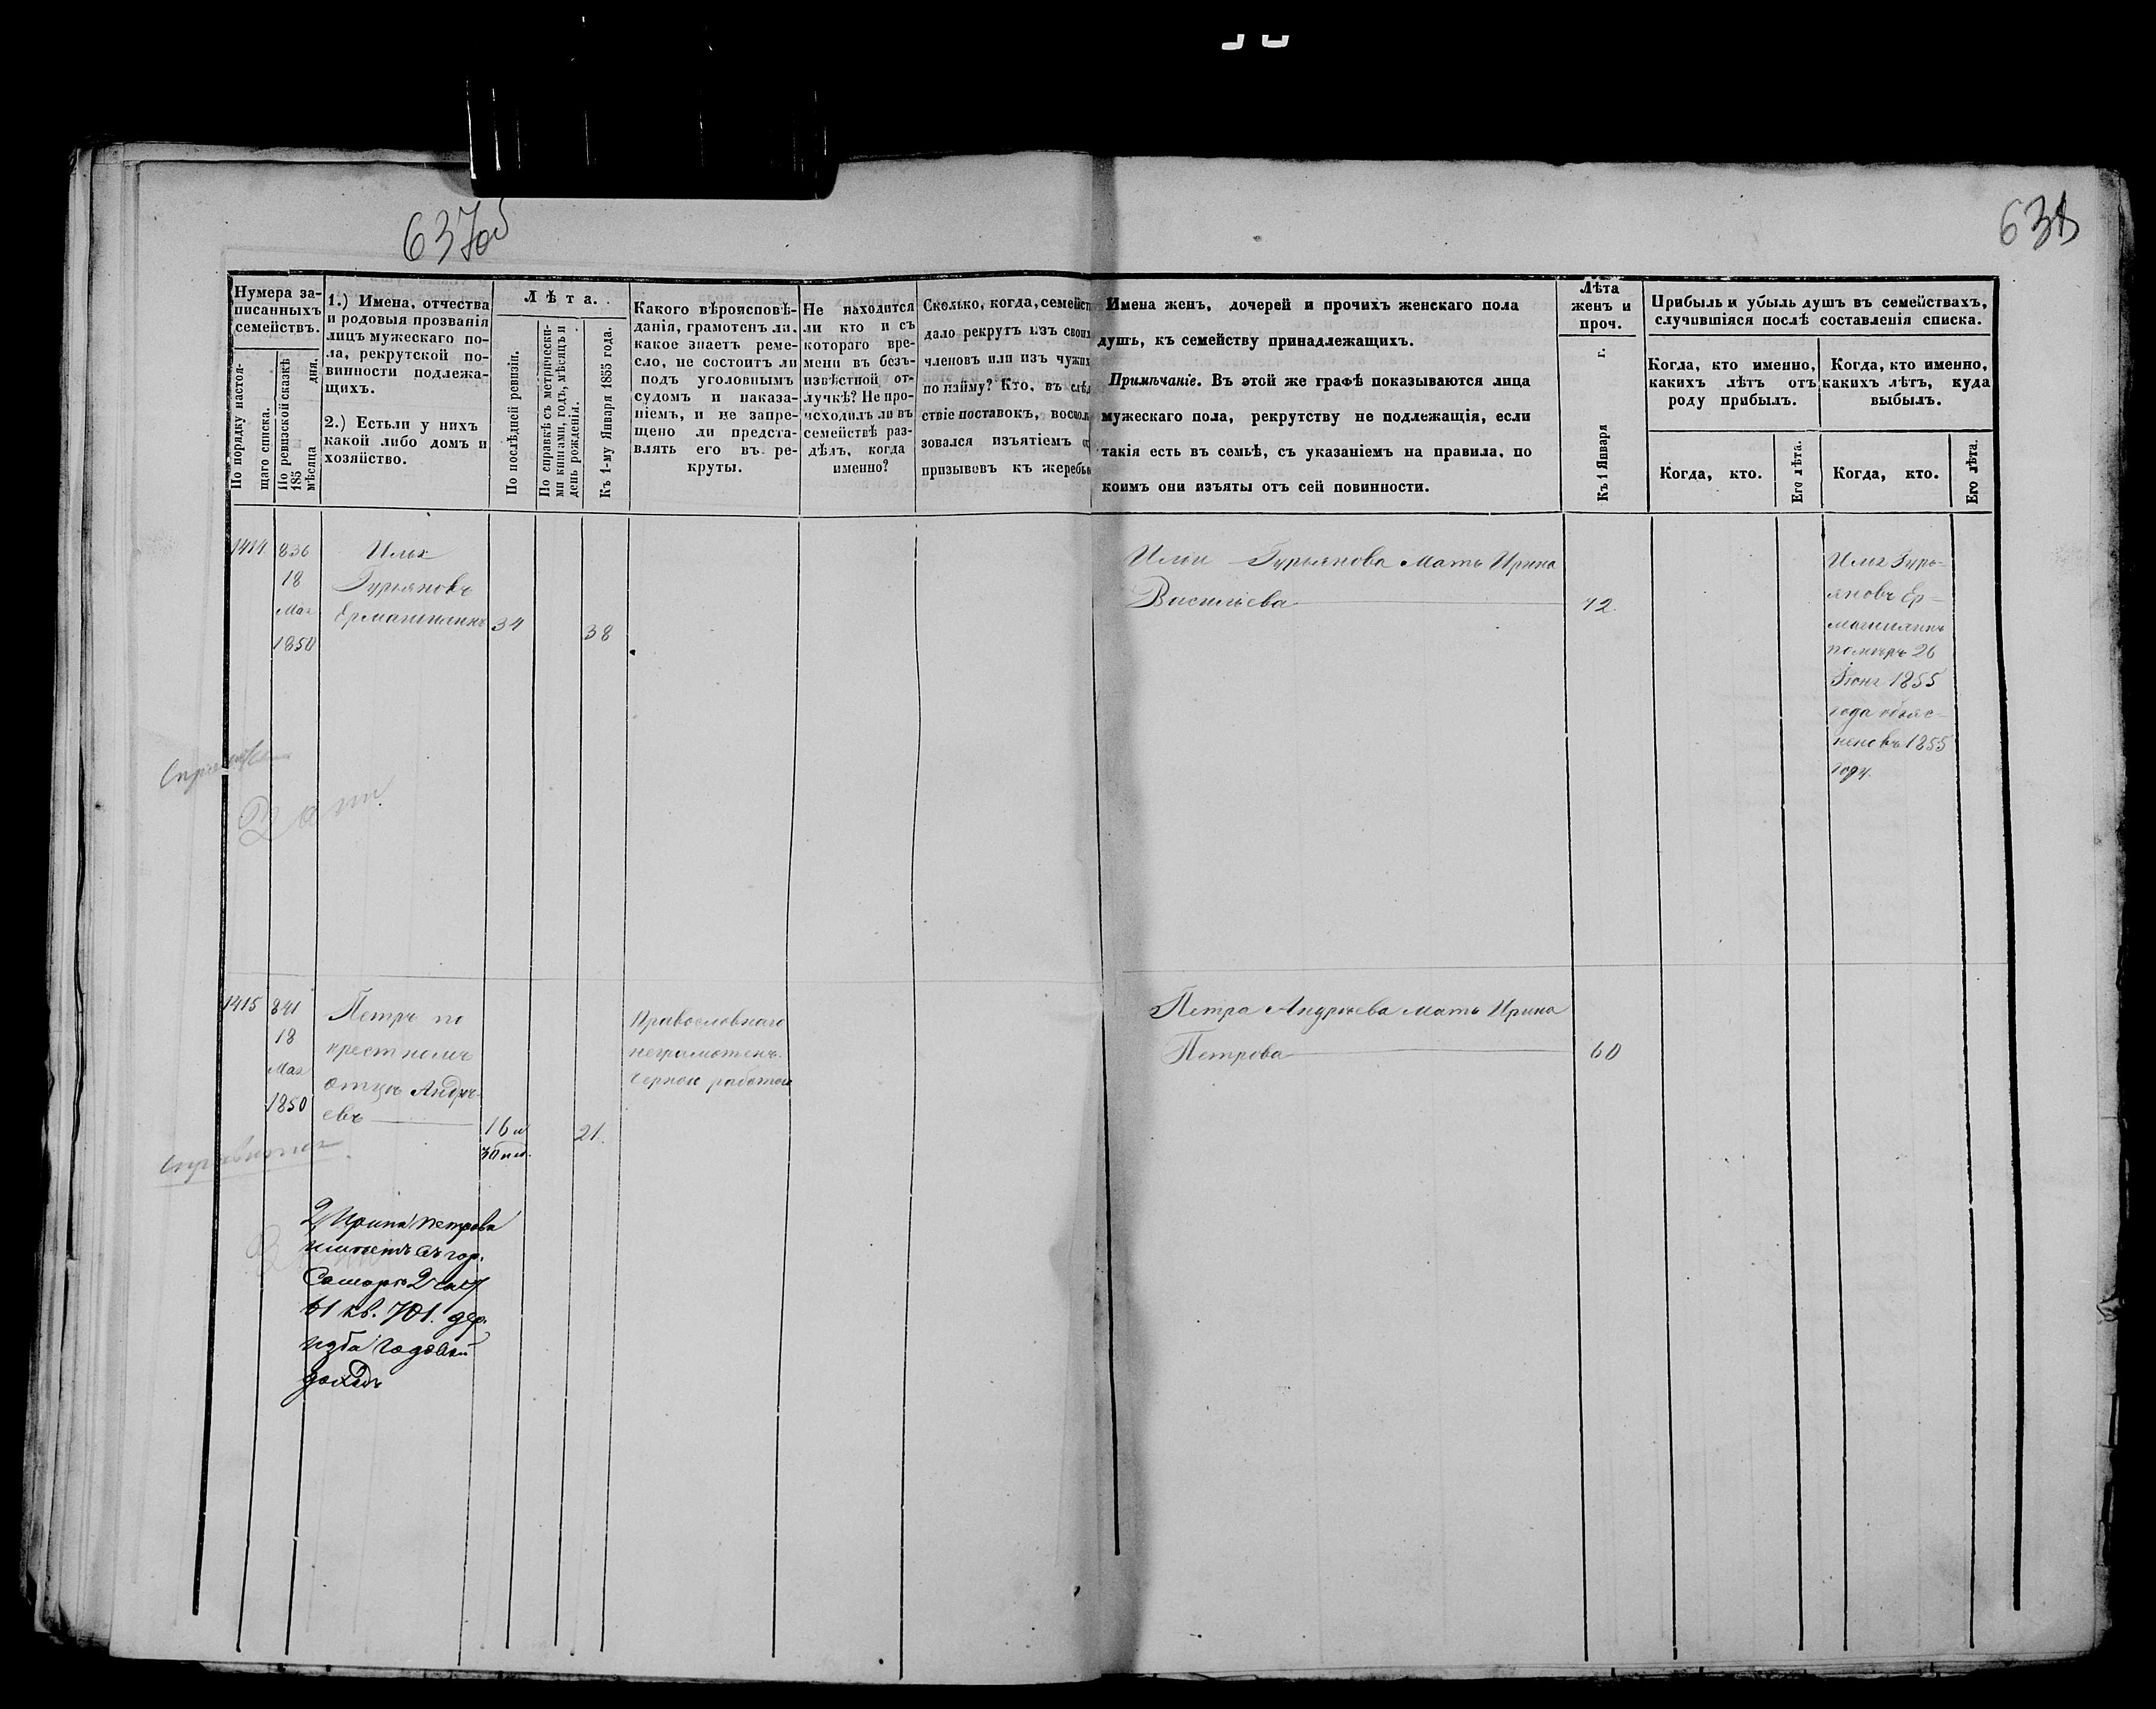 637об
638
Нумера за-
писанныхъ
семействъ.
По порядку настоя-
щаго списка.
По ревизской сказкѣ
185
мѣсяца дня.
1.) Имена, отчества
и родовыя прозванія
лицъ мужескаго по-
ла, рекрутской по-
винности подлежа-
щихъ.
2.) Естьли у нихъ
какой либо домъ и
хозяйство.
Лѣта.
По послѣдней ревизіи.
По справкѣ съ метрически-
ми книгами, годъ, мѣсяцъ и
день рожденія.
Къ 1-му Января 1855 года.
Какого вѣроисповѣ-
данія, грамотенъ ли,
какое знаетъ реме-
сло, не состоитъ ли
подъ уголовнымъ
судомъ и наказа-
ніемъ, и не запре-
щено ли предста-
влять его въ ре-
круты.
Не находится
ли кто и съ
котораго вре-
мени въ безъ-
извѣстной от-
лучкѣ? Не про-
исходилъ ли въ
семействѣ раз-
дѣлъ, когда
именно?
Сколько, когда, семейст
дало рекрутъ изъ своих
членовъ или изъ чужих
по найму? Кто, въ слѣд
ствіе поставокъ, воспол
зовался изъятіемъ о
призывовъ къ жеребь
Имена женъ, дочерей и прочихъ женскаго пола
душъ, къ семейству принадлежащихъ.
Примѣчаніе. Въ этой же графѣ показываются лица
мужескаго пола, рекрутству не подлежащія, если
такія есть въ семьѣ, съ указаніемъ на правила, по
коимъ они изъяты отъ сей повинности.
Лѣта
женъ и
проч.
Къ 1 Января г.
Прибыль и убыль душъ въ семействахъ,
случившіяся послѣ составленія списка.
Когда, кто именно,
какихъ лѣтъ отъ
роду прибылъ.
Когда, кто именно,
какихъ лѣтъ, куда
выбылъ.
Когда, кто.
Его лѣта.
Когда, кто.
Его лѣта.
1414
836
18
Мая
1850
Илья
Гурьяновъ
Ермашилинъ
34
38
Ильи Гурьянова Мать Ирина
Васильева
72.
Илья Гурь-
яновъ Ер-
помѣръ 26
Іюня 1855
года объяс-
1855
году.
1415
841
18
Мая
1850
Петръ по
крестномъ
отцѣ Андрѣ-
евъ
16 и
21.
Православнаго
неграмотенъ.
Черной работой
Петра Андрѣева Мать Ирина
Петрова
60
2, Ирина Петрова
имѣетъ въ гор.
Самарѣ 2 част
61 кв. 701. дер.
изба годовый
доходъ